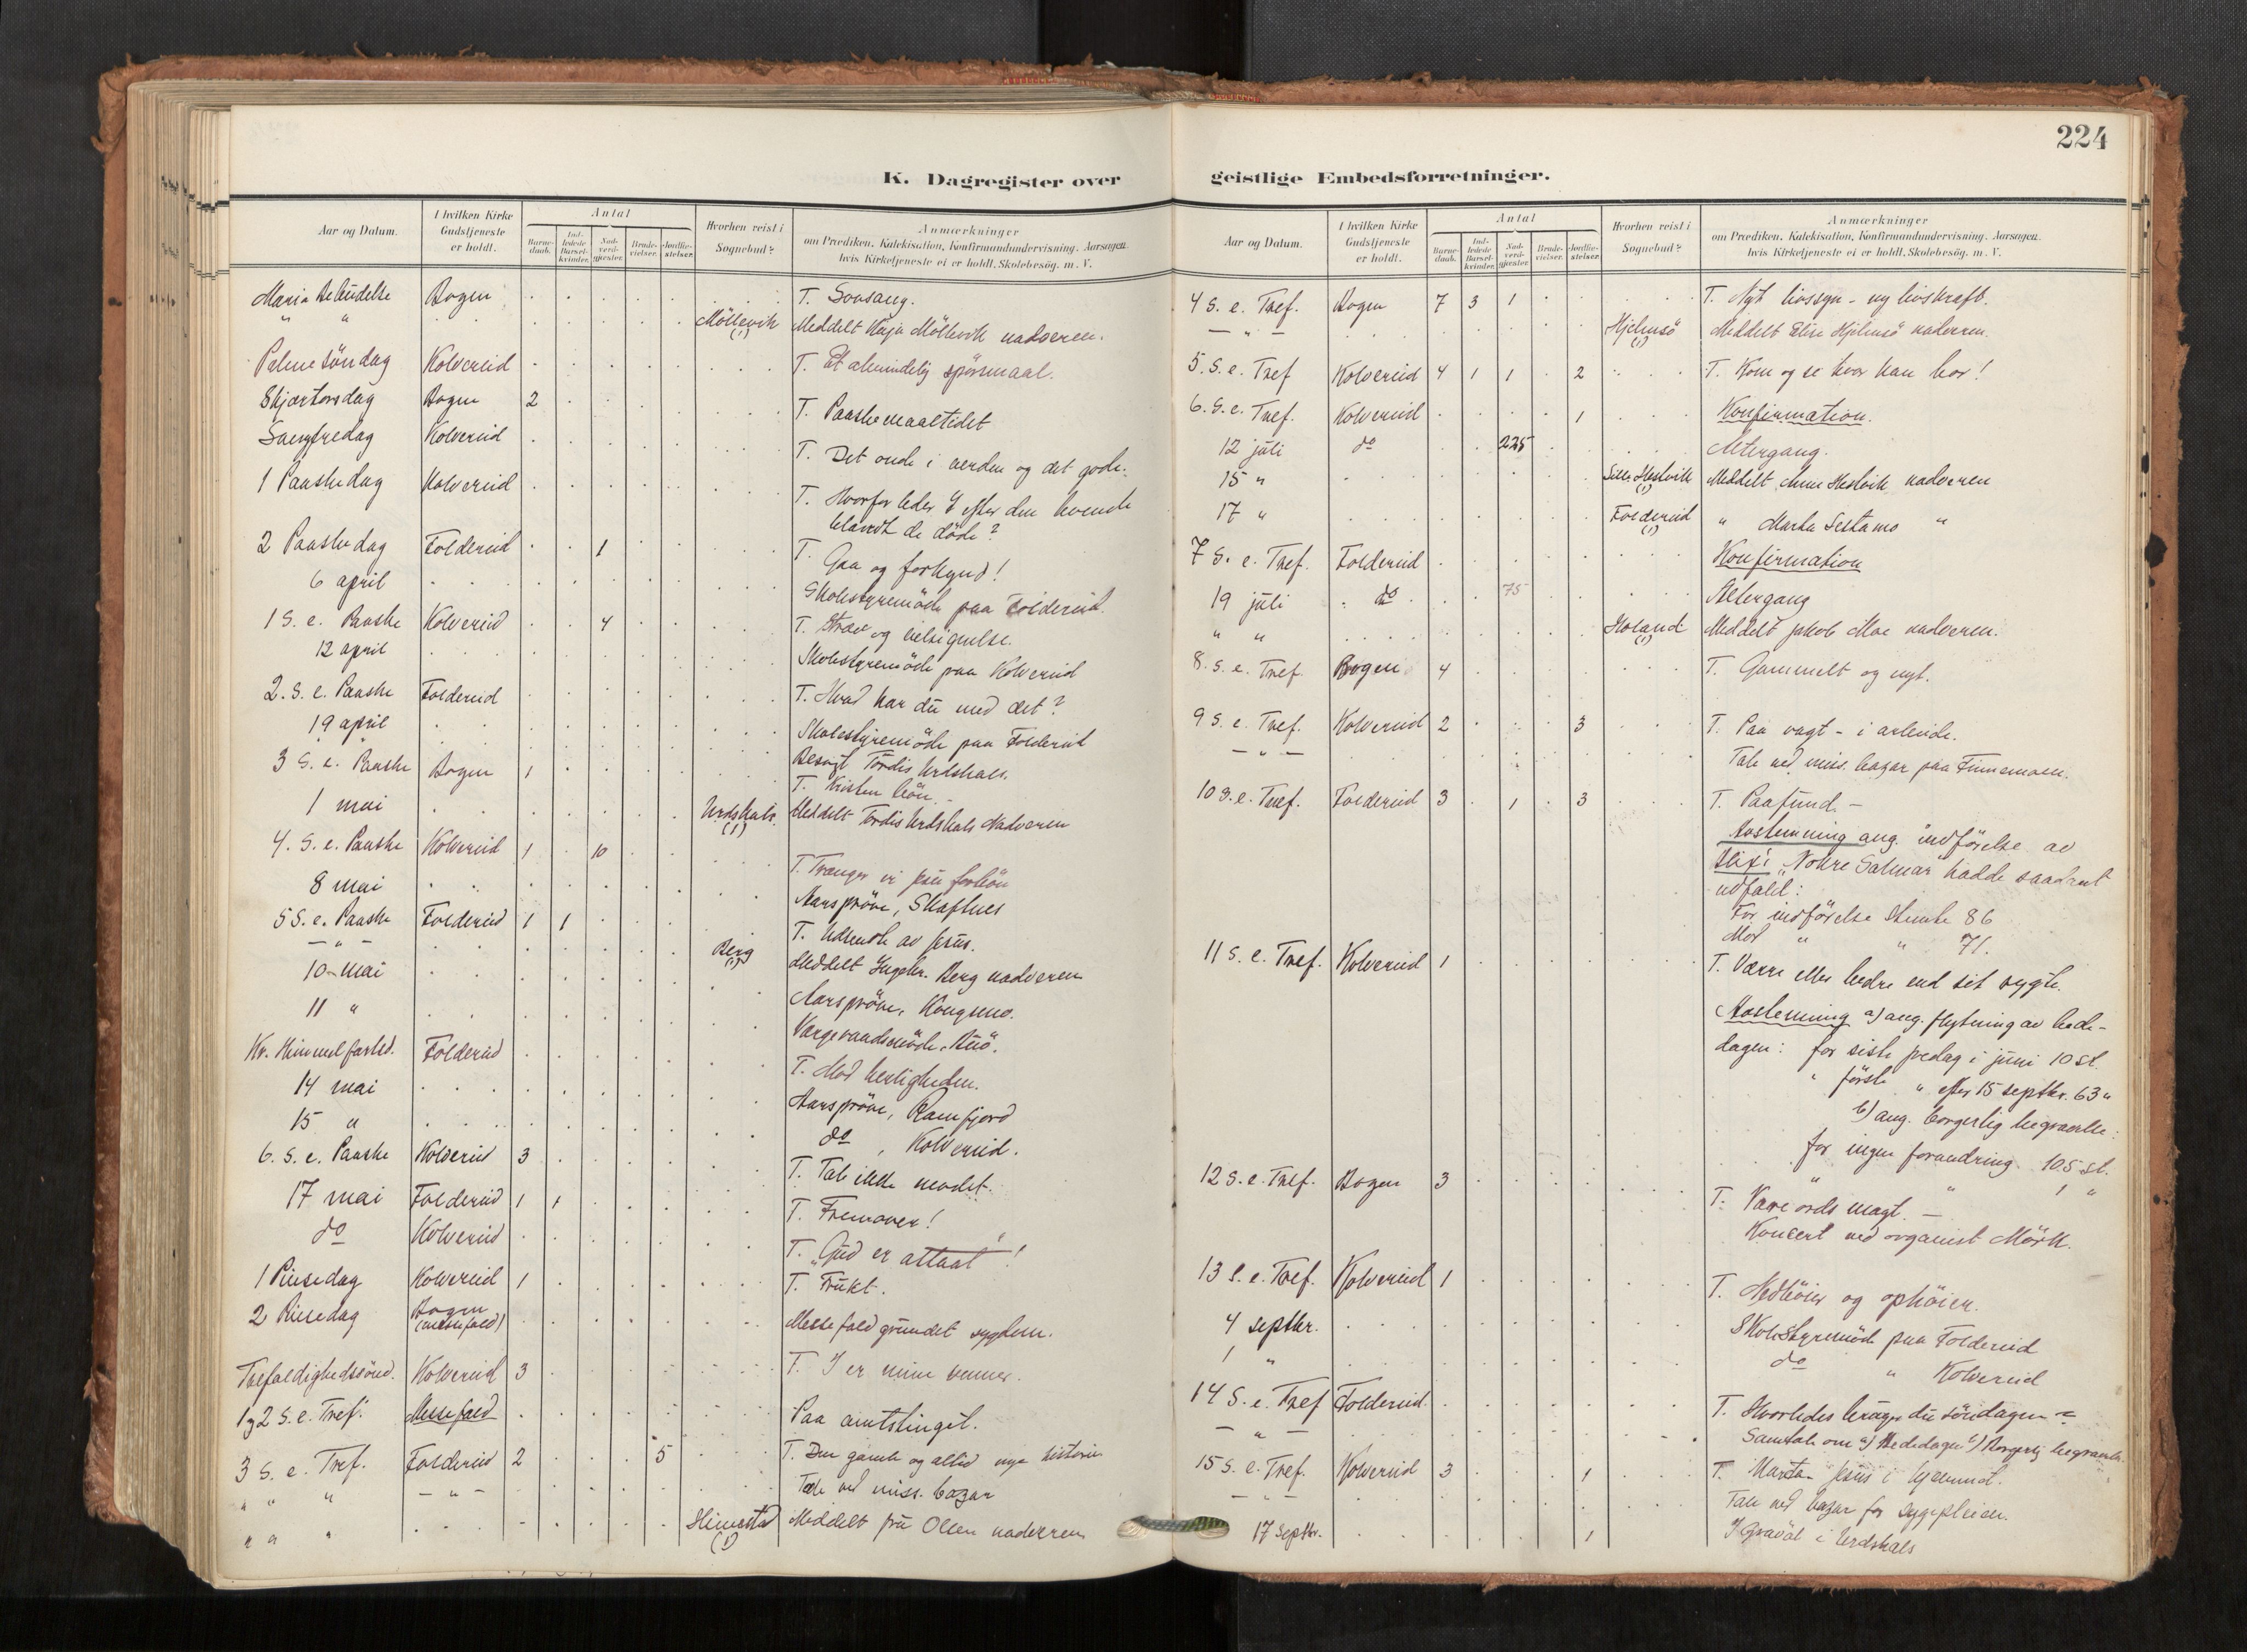 224
K. Dagregister over
Aar og Datum. I hvilken Kirke Gudstjeneste er holdt. Antal Barne-daab. Ind-ledede Barsel-kvinder. Nad-verd-gjester. Brude-vielser. Jordfæ-stelser. Hvorhen reist i Sognebud? Anmærkninger om Prædiken, Katekisation, Konfirmandundervisning, Aarsagen, hvis Kirketjeneste ei er holdt, Skolebesøg, m. V.
Maria Bebudelse Bogen T. Lovsang.
" " Möllevik (1) Meddelt Kaja Möllevik nadveren.
Palmesöndag Kolvereid T. Et almindelig spörsmaal.
Skjærtorsdag Bogen 2 T. Paaskemaaltidet
Langfredag Kolvereid T. Det onde i verden og det gode.
1 Paaskedag Kolvereid T. Hvorfor leder I efter den levende
blandt de döde?
2 Paaskedag Foldereid 1 T. Gaa og forkynd!
6 april Skolestyremöde paa Foldereid.
1 S. e. Paaske Kolvereid 4 T. Stræv og velsignelse.
12 april Skolestyremöde paa Kolvereid
2. S. e. Paaske Foldereid T. Hvad har du med det?
19 april Skolestyremöde paa Foldereid
Besögt Tordis Urdshals.
3 S. e. Paaske Bogen 1 T. Kristen bön.
1 mai Urdshals. (1) Meddelt Tordis Urdshals Nadveren
4. S. e. Paaske Kolvereid 1 10 T. Trænger vi Jesu forbön
8 mai Aarspröve, Skaflnes
5 S. e. Paaske Foldereid 1 1 T. Udsendt av Jesus.
— " — Berg (1) Meddelt Ingebr. Berg nadveren
10 mai Aarspröve, Kongsmo.
11 " Værgeraadsmöde,
Kr. Himmelfartsd. Foldereid T. Mod herligheden.
14 mai Aarspröve, Ramfjord
15 " do, Kolvereid.
6. S. e. Paaske Kolvereid 3 T. Tab ikke modet.
17 mai Foldereid 1 1 T. Fremover!
do Kolvereid T. "Gud er attaat"!
1 Pinsedag Kolvereid 1 T. Frukt.
2 Pinsedag Bogen (messefald) Messefald grundet sygdom.
Trefoldighedssönd. Kolvereid 3 T. I er mine venner.
1 og 2 S. e. Tref. Messefald Paa amtstinget.
3 S. e. Tref. Foldereid 2 5 T. Den gamle og altid nye historie
" " " — " — Tale ved miss. bazar
" " " (1) Meddelt fru Olsen nadveren
geistlige Embedsforretninger.
Aar og Datum. I hvilken Kirke Gudstjeneste er holdt. Antal Barne-daab. Ind-ledede Barsel-kvinder. Nad-verd-gjester. Brude-vielser. Jordfæ-stelser. Hvorhen reist i Sognebud? Anmærkninger om Prædiken, Katekisation, Konfirmandundervisning, Aarsagen, hvis Kirketjeneste ei er holdt, Skolebesøg, m. V.
4 S. e. Tref. Bogen 7 3 1 T. Nyt livssyn - ny livskraft.
— " — Hjelmsö (1) Meddelt Elise Hjelmsö nadveren.
5. S. e. Tref Kolvereid 4 1 1 2 T. Kom og se hvor han bor!
6. S. e. Tref. Kolvereid 1 Konfirmation.
12 juli do 225 Altergang.
15 " Hestvik (1) Meddelt Anne Hestvik nadveren
17 " Foldereid (1) " Marta "
7 S. e. Tref. Foldereid Konfirmation
19 juli do 75 Altergang
" " Høland (1) Meddelt Jakob Moe nadveren.
8. S. e. Tref. Bogen 4 T. Gammelt og nyt.
9 S. e. Tref. Kolvereid 2 3 T. Paa vagt - i arbeide.
— " — Tale ved miss. bazar paa Finnemoen.
10 S. e. Tref. Foldereid 3 1 3 T. Paafund. -
Avstemning ang. indförelse av
Blix's "Nokre Salmar hadde saadant
udfald:
For indförelse stemte 86
Mod " " 71.
11 S. e. Tref. Kolvereid 1 T. Værre eller bedre end sit rygte.
Avstemning a) ang. flytning av bede-
dagen: for siste fredag i juni 10 st.
" förste " efter 15 septbr. 63 "
b) ang. borgerlig begravelse:
for ingen forandring 105 st.
" " 1 "
12 S. e. Tref. Bogen 3 T. Vare ords magt. -
Koncert ved organist Mörk.
13 S. e. Tref. Kolvereid 1 T. Nedböier og ophöier.
4 septbr. Skolestyremöde paa Foldereid
" do " Kolvereid
14 S. e. Tref Foldereid T. Hvorledes bruger du söndagen?
— " — Samtale om a) Bededagen b) Borgerlig begravelse.
15 S. e. Tref. Kolvereid 3 1 T. Marta - Jesus i hjemmet.
— " — Tale ved bazar for sygepleien.
17 Septbr. 1 I Gravöl i Urdshals